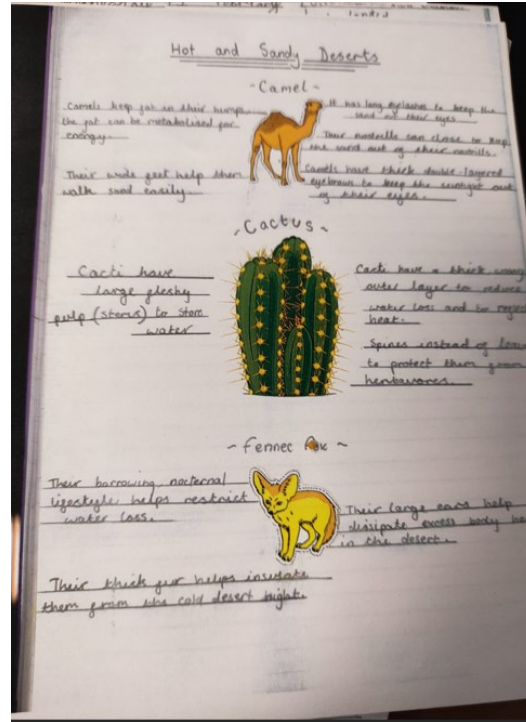 Hot and Sandy Deserts
- Camel -
Camels keep fat in their humps
the fat can be metabolised for
energy.
Their wide feet help them
walk sand easily.
It has long eyelashes to keep the
sand out their eyes
Their nostrills can close to keep
the sand out of their nostrills.
Camels have thick double-layered
eyebrows to keep the sunlight out
of their eyes.
- Cactus -
Cacti have
large fleshy
pulp (stems) to store
water
Cacti have a thick waxy
outer layer to reduce
water loss and to reflect
heat.
Spines instead of leaves
to protect them from
herbavores.
~ Fennec Fox ~
Their borrowing, nocternal
ligestyle helps restrict
water loss.
Their large ears help
dissipate excess body
in the desert.
Their thick fur helps insulate
them from the cold desert night.